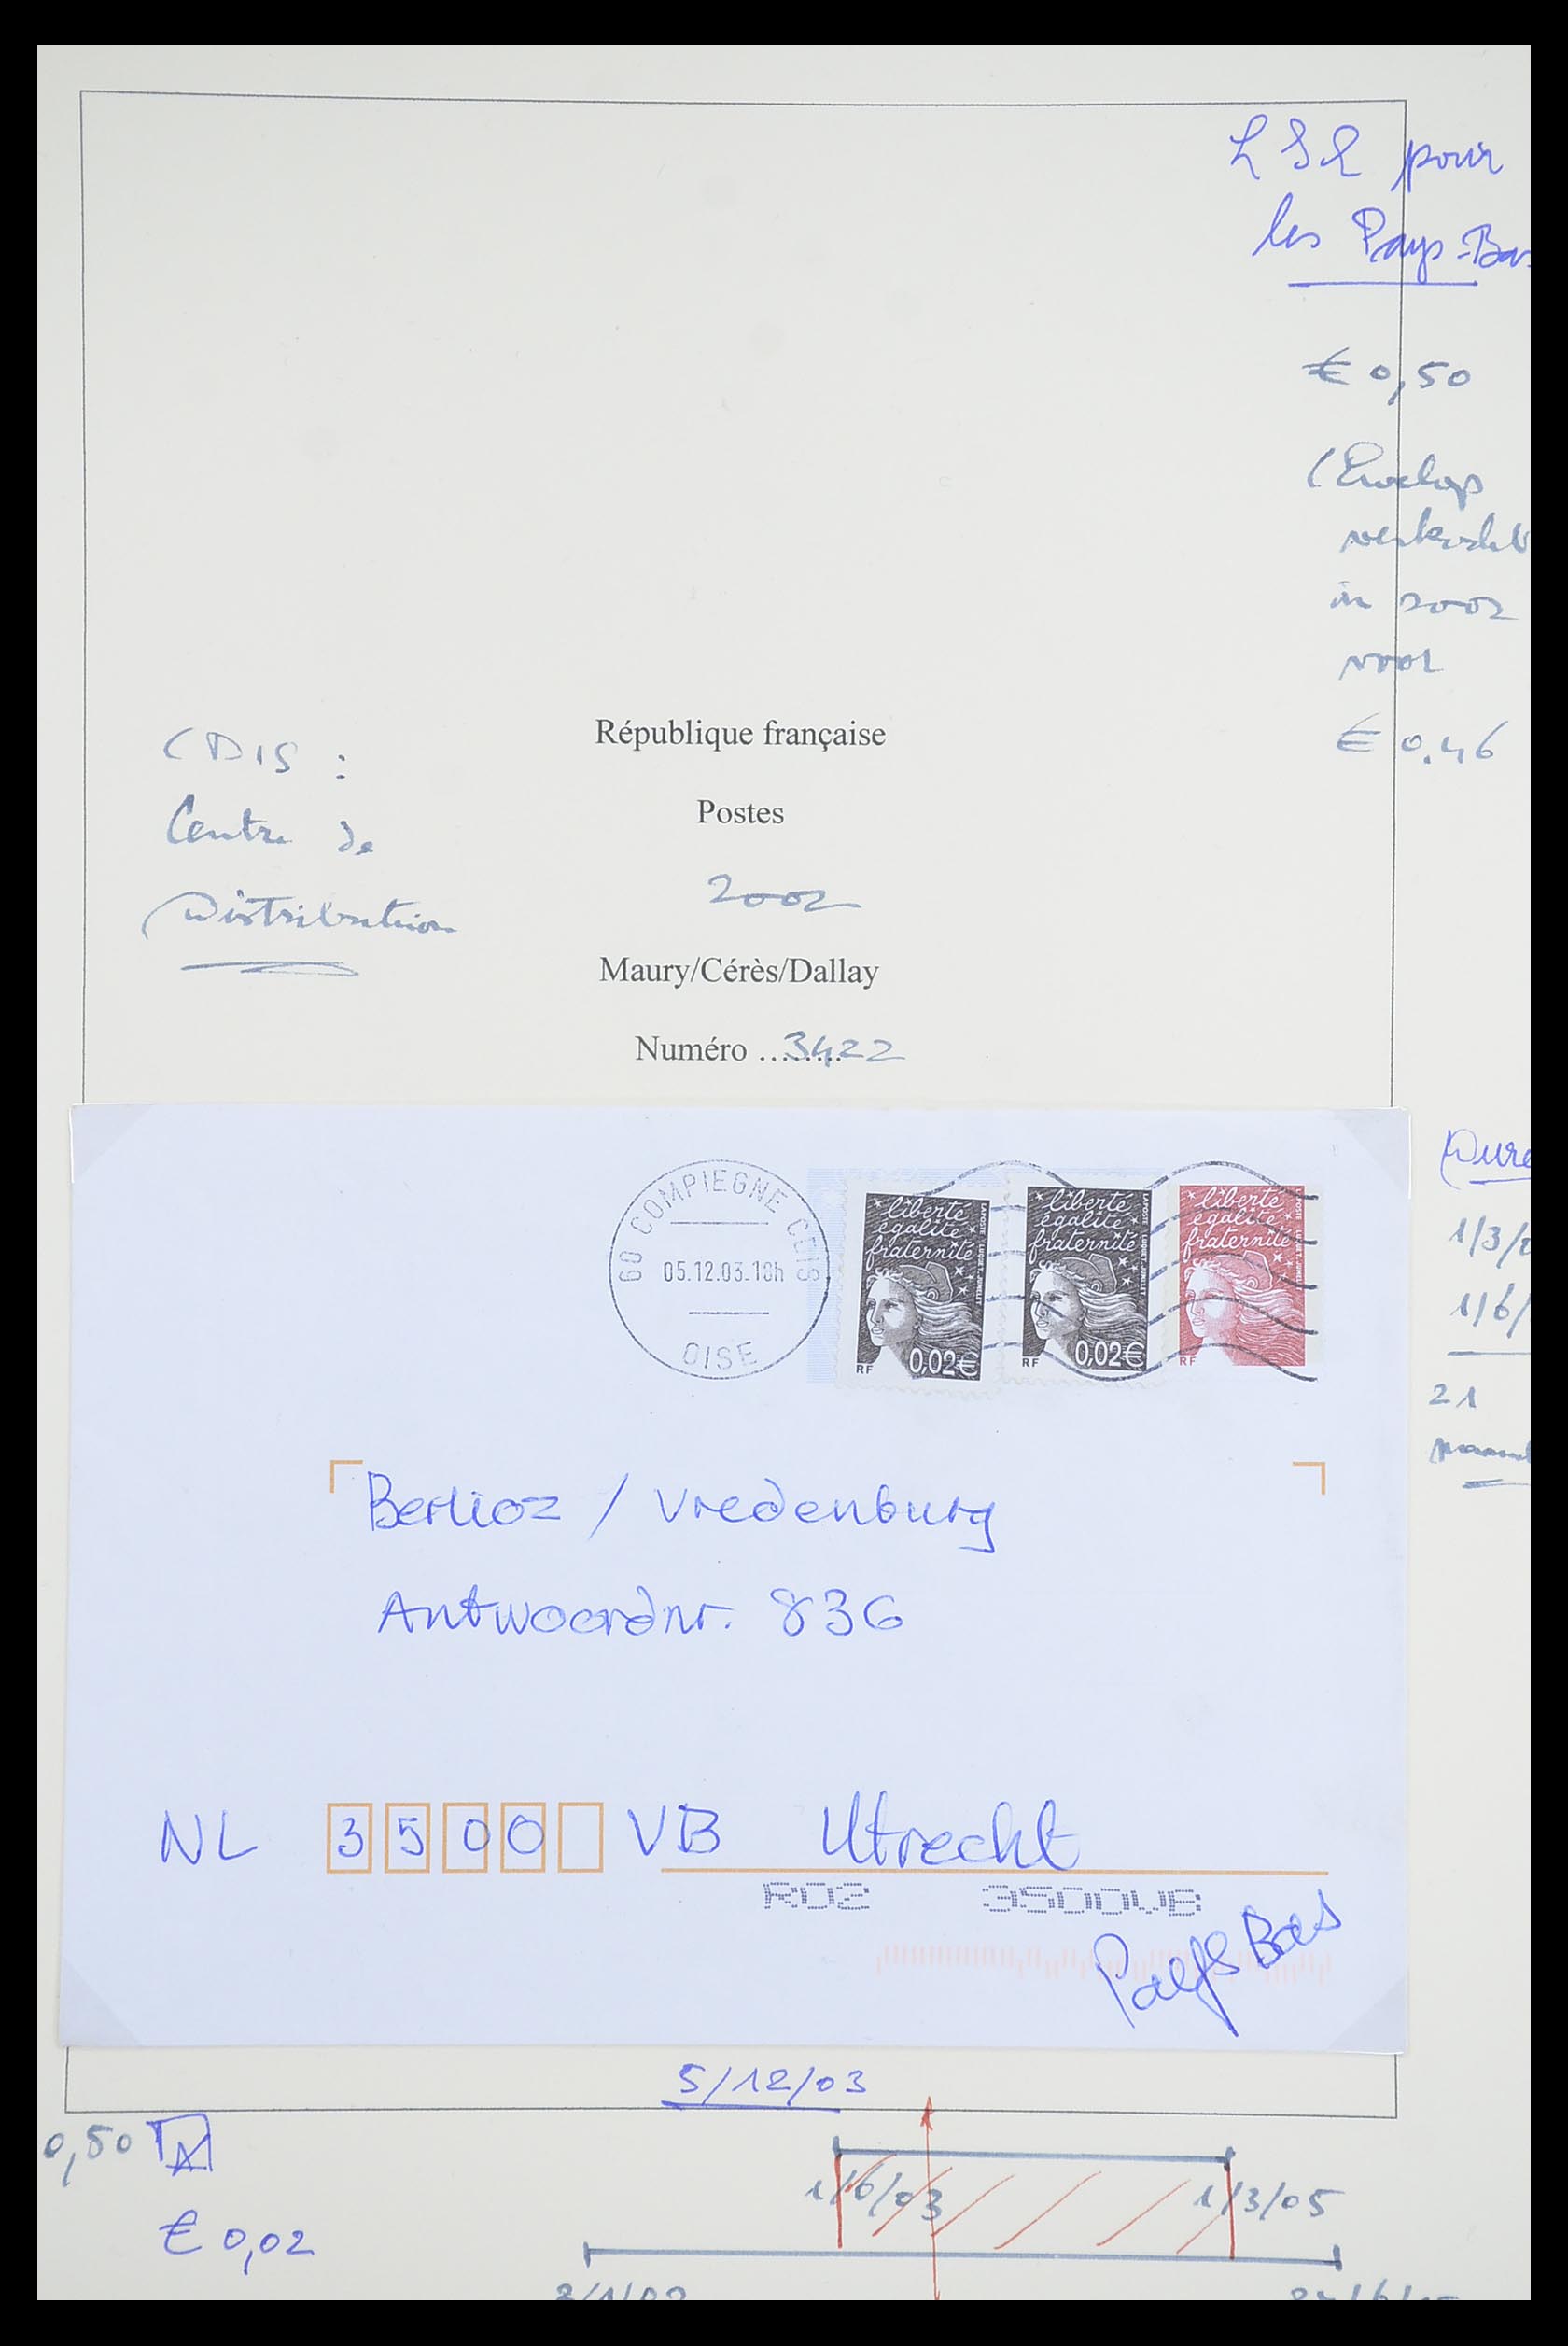 LSE pour
les Pays-Bas
€ 0,50
(Envelop
verkocht
in 2002
voor
€ 0.46
CDIS :
Centre de
Distribution
République française
Postes
2002
Maury/Cérès/Dallay
Numéro ........3422
60 COMPIEGNE CDIS
05.12.03.18h
OISE
liberté
égalité
fraternité
LA POSTE LUQUET JUMELET
RF
0,02€
liberté
égalité
fraternité
LA POSTE LUQUET JUMELET
RF
0,02€
liberté
égalité
fraternité
RF
1/3/
1/6/
21
Berlioz / Vredenburg
Antwoordnr. 836
NL 3500 VB Utrecht
R02 3500VB
Pays Bas
5/12/03
0,50
€ 0,02
1/6/03
1/3/05